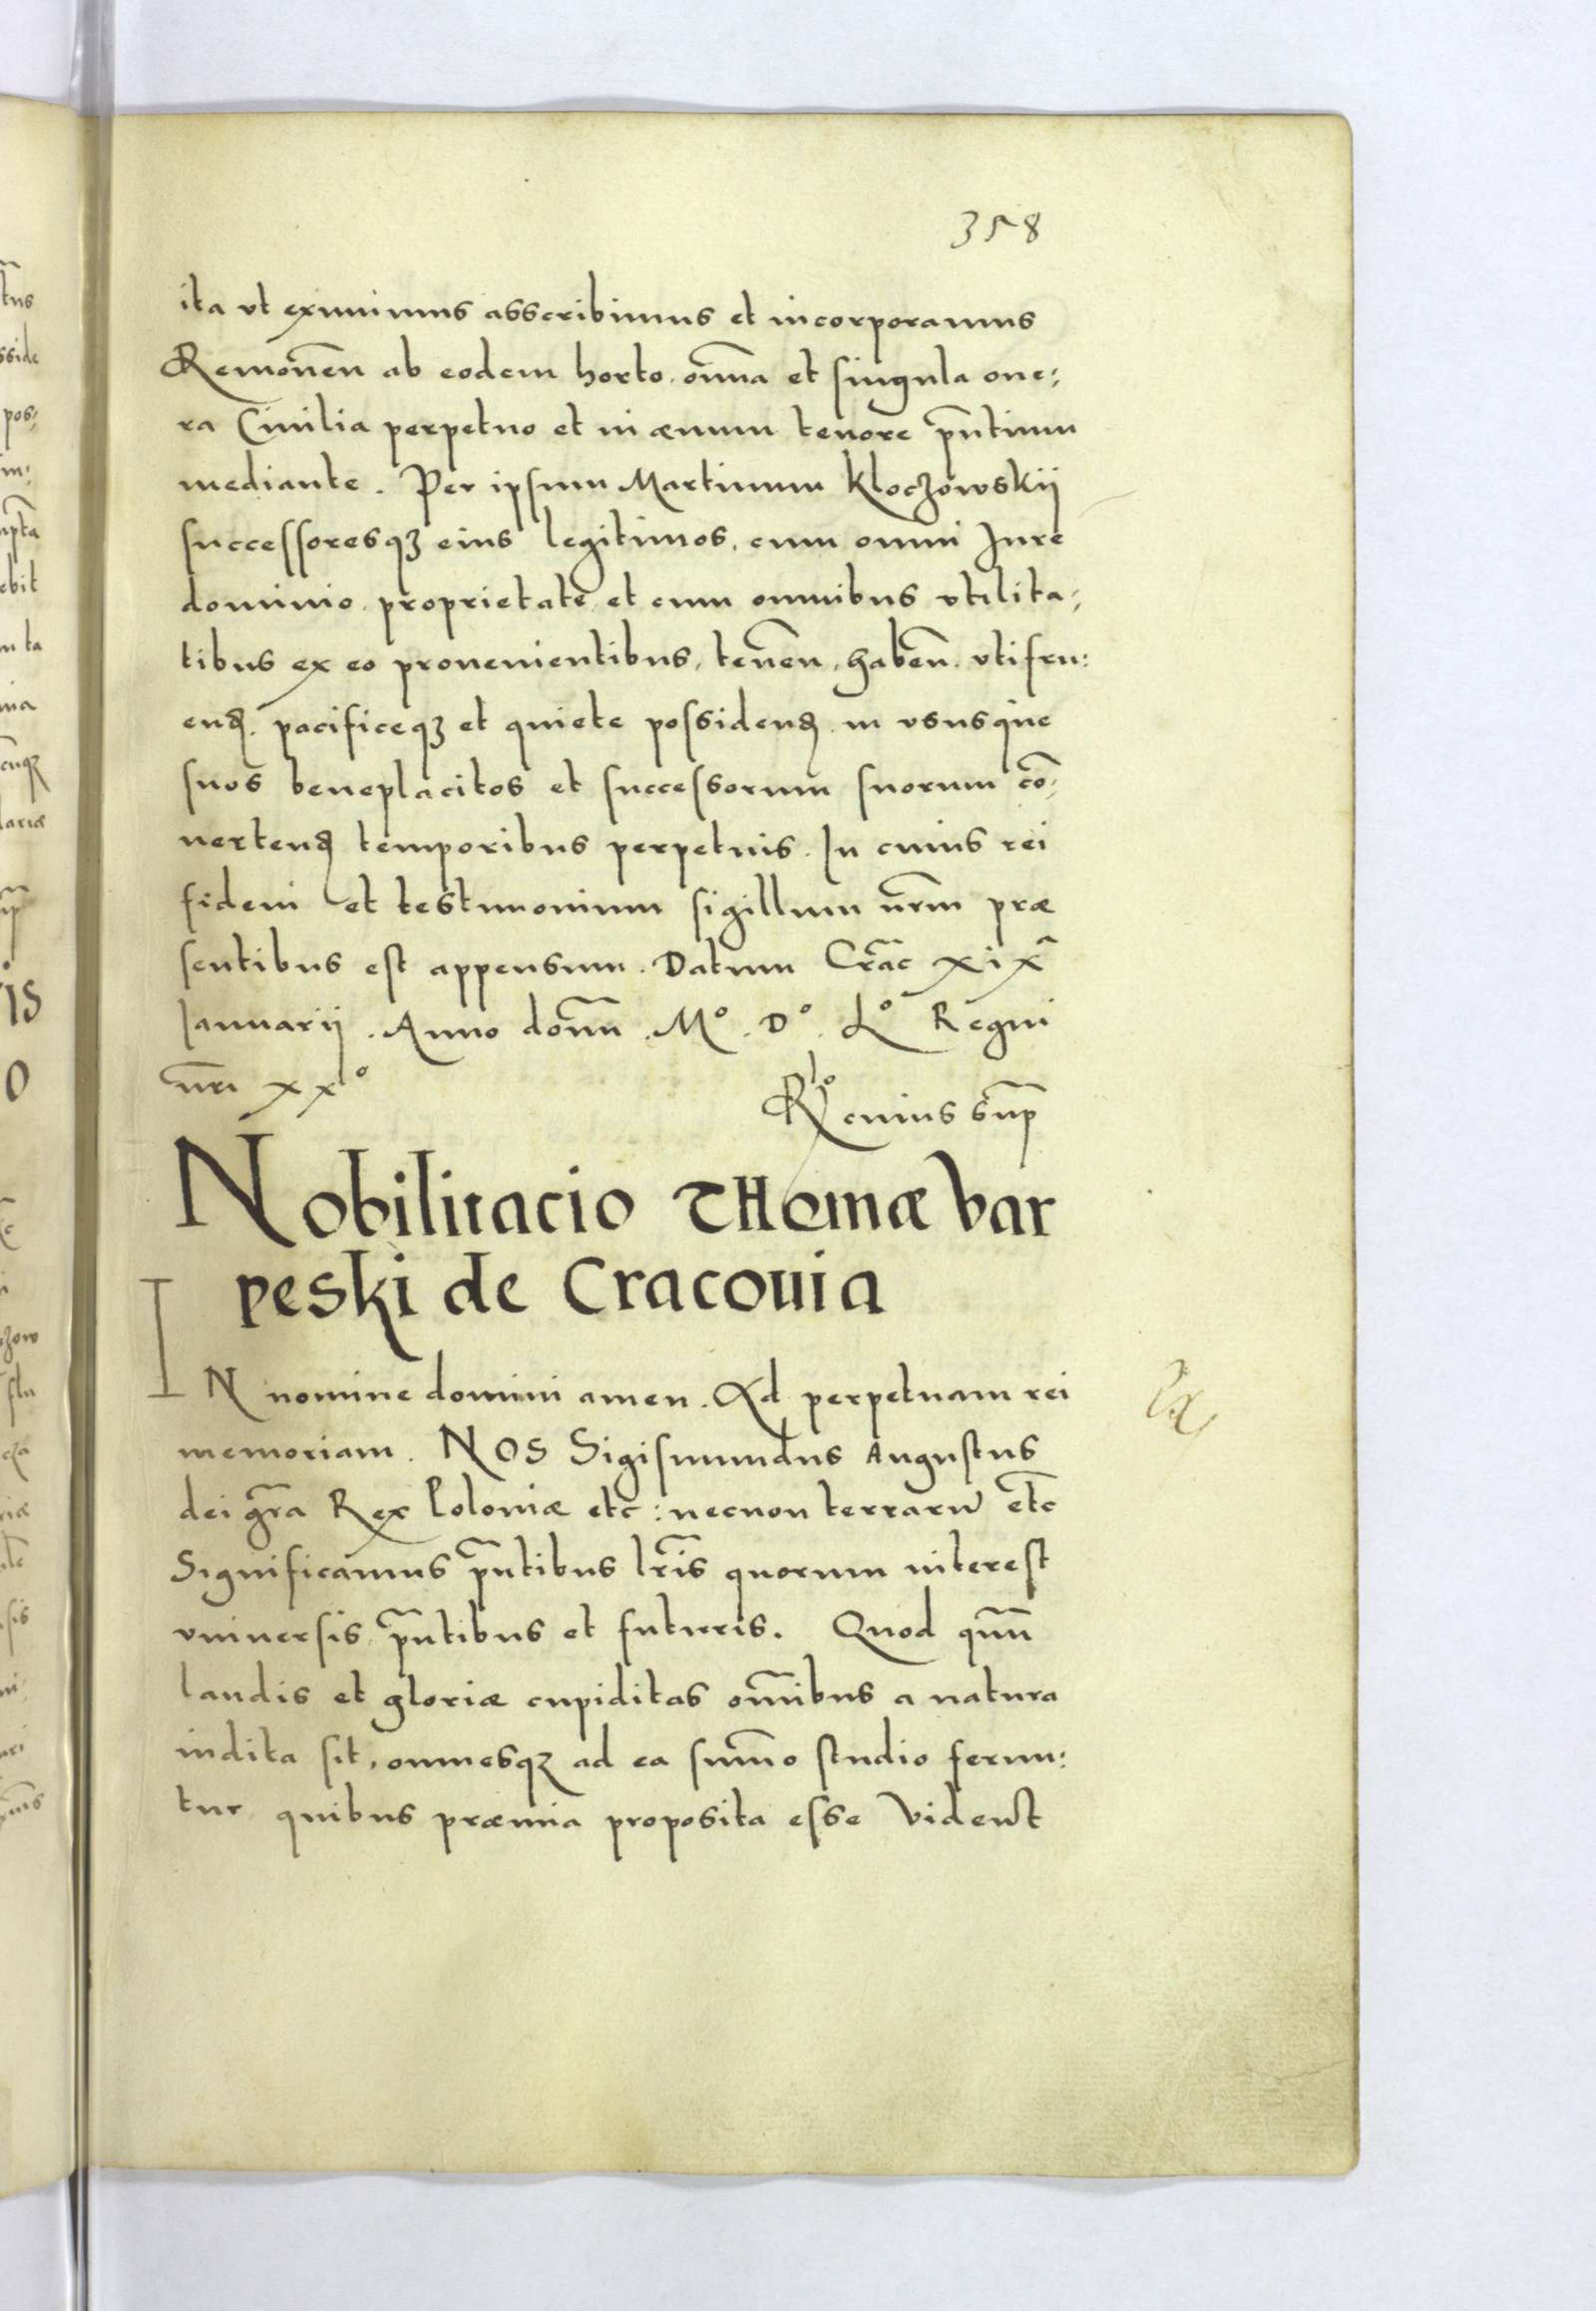 358
ita vt eximimus asscribimus et incorporamus
Remouen̄ ab eodem horto. om̄ia et singula one:
ra Ciuilia perpetuo et in æuum tenore p̄ntium
mediante. Per ipsum Martinum Kloczowskij
successoresqꝫ eius legitimos. cum omni Iure
dominio. proprietate et cum omnibus vtilita:
tibus ex eo prouenientibus, tenēn, habēn. vtifru:
endꝭ. pacificeqꝫ et quiete possidendꝭ. in vsusque
suos beneplacitos et successorum suorum cō:
uertendꝭ temporibus perpetuis. In cuius rei
fidem et testimonium sigillum nr̄m præ
sentibus est appensum. Datum Crāc xixᵃ
Ianuarij. Anno domn̄. Mº. Dº. Lº Regni
nr̄i xxº
R̊lo cuius sup̄
Nobilitacio THomæ Var
peski de Cracouia
IN nomine domini amen. Ad perpetuam rei
memoriam. NOS Sigismundus Augustus
dei gr̄a Rex Poloniæ etc: necnon terrarū etc̄
Significamus p̄ntibus lr̄is quorum interest
vniuersis p̄ntibus et futuris. Quod quū
laudis et gloriæ cupiditas om̄ibus a natura
indita sit, omnesqꝫ ad ea sum̄o studio ferun:
tur quibus præmia proposita esse Vident̄